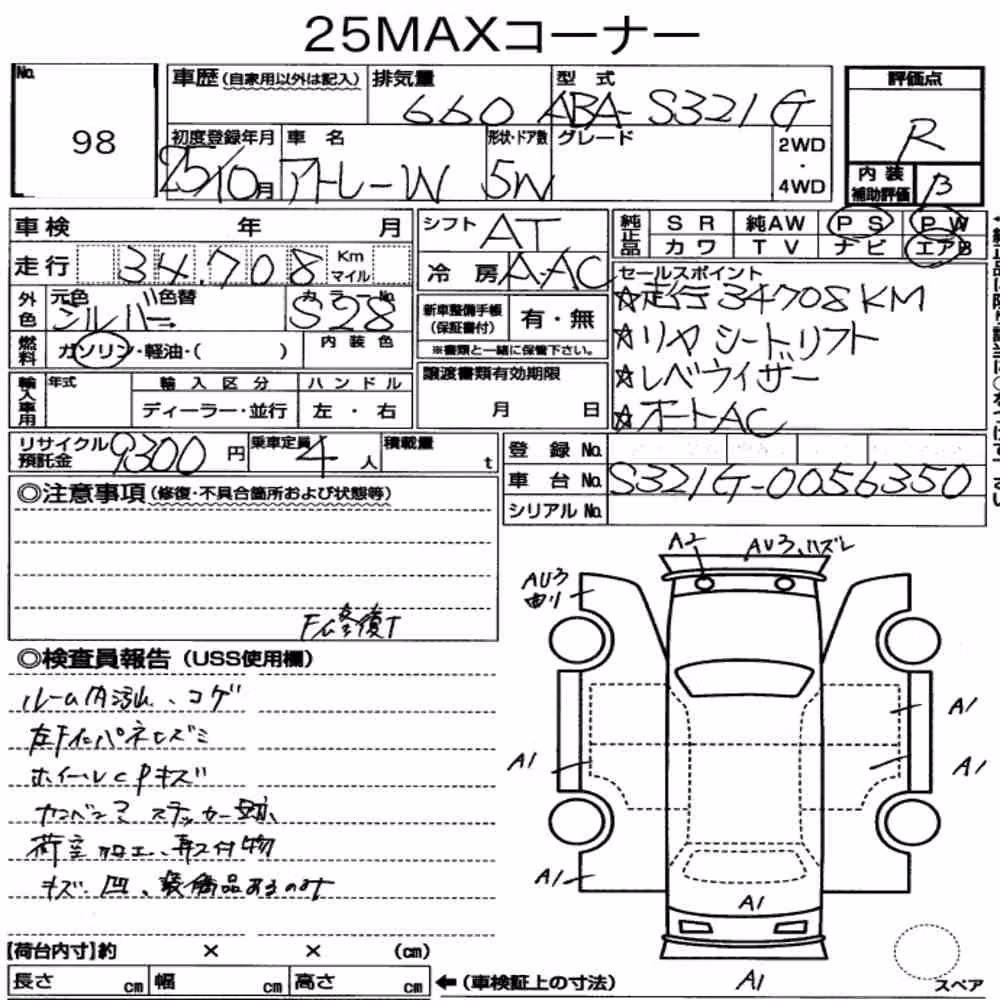 25MAXコーナー
No.
98
車歴(自家用以外は記入)
排気量
660
型式
ABA-S321G
評価点
R
内装
補助評価
B
初度登録年月
25/10月
車名
アトレーW
形状・ドア数
5W
グレード
2WD
・
4WD
車検 年 月
走行 34,708 Km マイル
シフト AT
冷房 A-AC
純正品
SR 純AW PS PW
カワ TV ナビ エアB
外色
元色 色替
シルバー→
カラーNo.
S28
燃料
ガソリン・軽油・( )
内装色
新車整備手帳
(保証書付)
有・無
※書類と一緒に保管下さい。
セールスポイント
☆走行34708KM
☆リヤシートリフト
☆レベライザー
☆オートAC
輸入車用
年式
輸入区分
ハンドル
ディーラー・並行
左・右
譲渡書類有効期限
月 日
リサイクル
預託金
9300円
乗車定員
4人
積載量
t
登録No.
車台No. S321G-0056350
シリアルNo.
◎注意事項(修復・不具合箇所および状態等)
◎検査員報告(USS使用欄)
ルーム内汚れ、コゲ
ホイールCPキズ
ステッカー跡
荷室加工、取付物
キズ、凹、装備品あるのみ
AU3
曲り
A2
AU3、ハズレ
A1
A1
A1
A1
A1
A1
スペア
[荷台内寸]約 × × (cm)
長さ cm 幅 cm 高さ cm
←(車検証上の寸法)